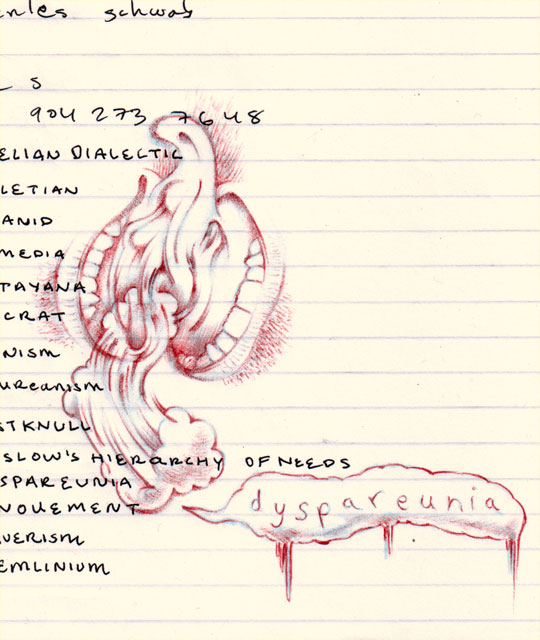 arles schwab
L S
904 273 7648
ELIAN DIALECTIC
LETIAN
ANID
MEDIA
TAYANA
CRAT
NISM
UREANISM
STKNULL
SLOW'S HIERARCHY OF NEEDS
SPAREUNIA
NOUEMENT
dyspareunia
UERISM
EMLINIUM